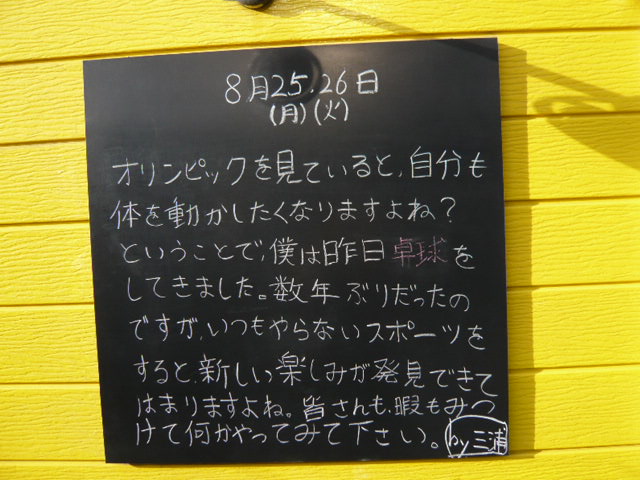 8月25.26日
(月)(火)
オリンピックを見ていると、自分も
体を動かしたくなりますよね？
ということで、僕は昨日卓球を
してきました。数年ぶりだったの
ですが、いつもやらないスポーツを
すると、新しい楽しみが発見できて
はまりますよね。皆さんも、暇もみつ
けて何かやってみて下さい。
by 三浦